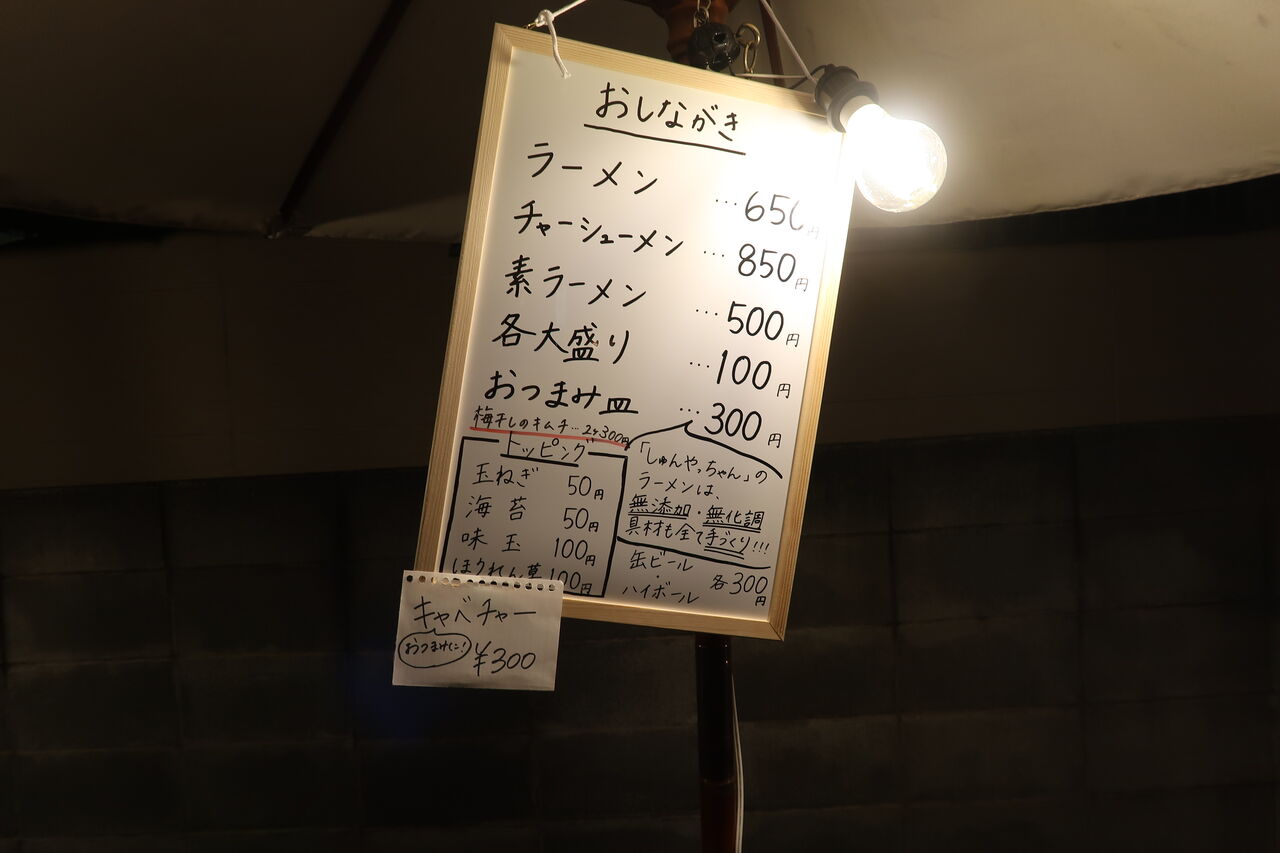 おしながき
ラーメン …650円
チャーシューメン …850円
素ラーメン …500円
各大盛り …100円
おつまみ皿 …300円
梅干しのキムチ…2ケ300円
トッピング
玉ねぎ 50円
海苔 50円
味玉 100円
ほうれん草 100円
「しゅんやっちゃん」の
ラーメンは、
無添加・無化調
具材も全て手づくり!!!
缶ビール
・
ハイボール
各300円
キャベチャー
おつまみに!
¥300